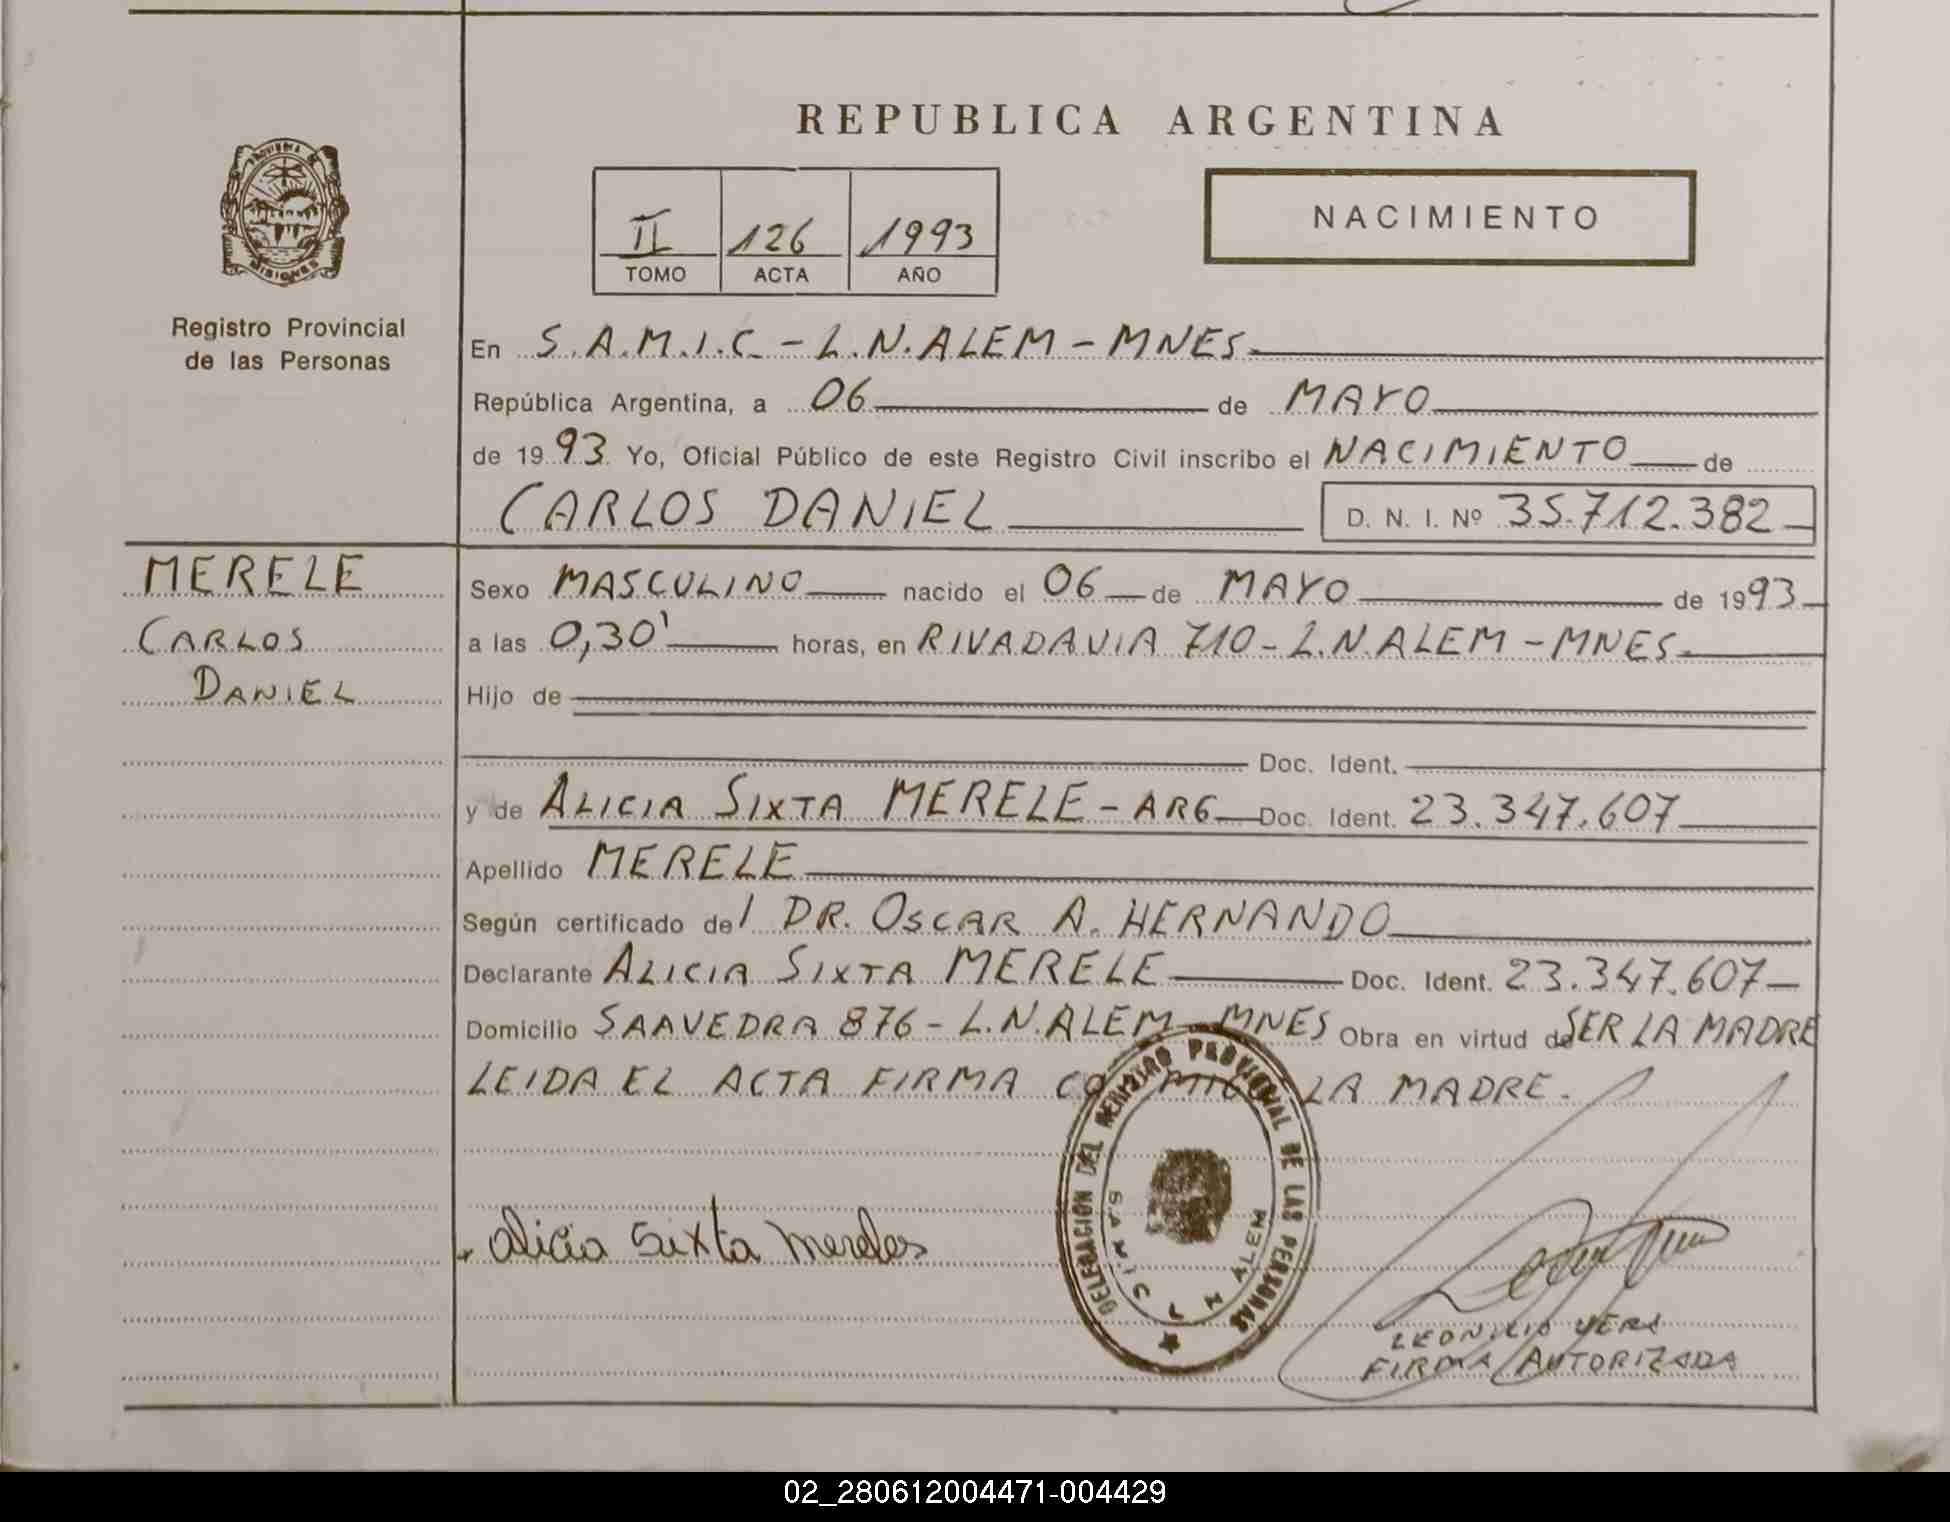 REPUBLICA ARGENTINA
PROVINCIA DE
MISIONES
Registro Provincial
de las Personas
II 126 1993
TOMO ACTA AÑO
NACIMIENTO
En S.A.M.I.C. - L.N.ALEM - MNES
República Argentina, a 06 de MAYO
de 1993 Yo, Oficial Público de este Registro Civil inscribo el NACIMIENTO de
CARLOS DANIEL D. N. I. Nº 35.712.382
MERELE
CARLOS
DANIEL
Sexo MASCULINO nacido el 06 de MAYO de 1993
a las 0,30' horas, en RIVADAVIA 710 - L.N.ALEM - MNES
Hijo de
Doc. Ident.
y de ALICIA SIXTA MERELE - ARG Doc. Ident. 23.347.607
Apellido MERELE
Según certificado del DR. OSCAR A. HERNANDO
Declarante ALICIA SIXTA MERELE Doc. Ident. 23.347.607
Domicilio SAAVEDRA 876 - L.N.ALEM - MNES Obra en virtud de SER LA MADRE
LEIDA EL ACTA FIRMA CONMIGO LA MADRE.
DELEGACION DEL REGISTRO PROVINCIAL DE LAS PERSONAS
S.A.M.I.C. L N ALEM
Alicia Sixta Mereles
LEONILIO
FIRMA AUTORIZADA
02_280612004471-004429